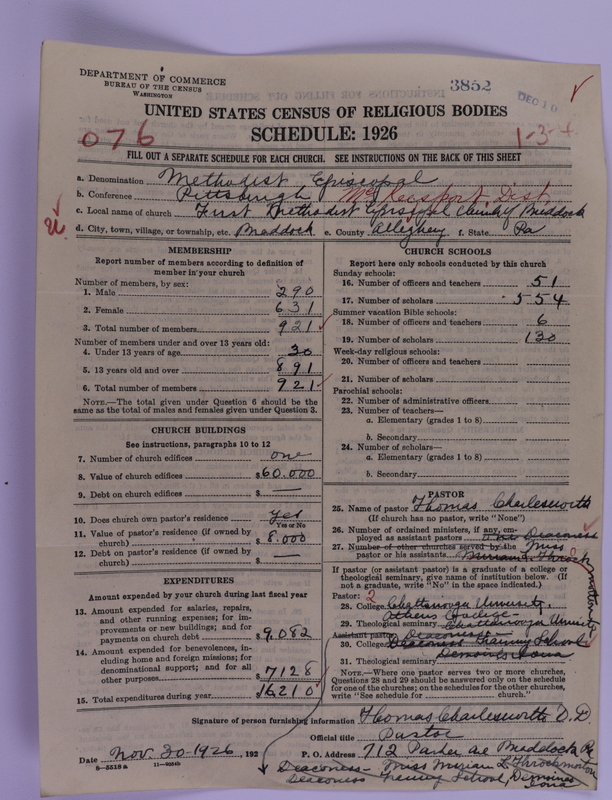 DEPARTMENT OF COMMERCE
BUREAU OF THE CENSUS
WASHINGTON
3852
DEC 10
UNITED STATES CENSUS OF RELIGIOUS BODIES
SCHEDULE: 1926
076
1-3-+
FILL OUT A SEPARATE SCHEDULE FOR EACH CHURCH. SEE INSTRUCTIONS ON THE BACK OF THIS SHEET
a. Denomination Methodist Episcopal
b. Conference Pittsburgh McKeesport Dist.
c. Local name of church First Methodist Episcopal Church, Braddock
d. City, town, village, or township, etc. Braddock e. County Allegheny f. State Pa
MEMBERSHIP
Report number of members according to definition of member in your church
Number of members, by sex:
1. Male 290
2. Female 631
3. Total number of members 921
Number of members under and over 13 years old:
4. Under 13 years of age 30
5. 13 years old and over 891
6. Total number of members 921
NOTE.—The total given under Question 6 should be the same as the total of males and females given under Question 3.
CHURCH BUILDINGS
See instructions, paragraphs 10 to 12
7. Number of church edifices one
8. Value of church edifices $60.000
9. Debt on church edifices $ —
10. Does church own pastor's residence yes
Yes or No
11. Value of pastor's residence (if owned by church) $ 8.000
12. Debt on pastor's residence (if owned by church) $ —
EXPENDITURES
Amount expended by your church during last fiscal year
13. Amount expended for salaries, repairs, and other running expenses; for improvements or new buildings; and for payments on church debt $9.082
14. Amount expended for benevolences, including home and foreign missions; for denominational support; and for all other purposes $7128
15. Total expenditures during year $16210
CHURCH SCHOOLS
Report here only schools conducted by this church
Sunday schools:
16. Number of officers and teachers 51
17. Number of scholars 554
Summer vacation Bible schools:
18. Number of officers and teachers 6
19. Number of scholars 130
Week-day religious schools:
20. Number of officers and teachers
21. Number of scholars
Parochial schools:
22. Number of administrative officers
23. Number of teachers—
a. Elementary (grades 1 to 8)
b. Secondary
24. Number of scholars—
a. Elementary (grades 1 to 8)
b. Secondary
PASTOR
25. Name of pastor Thomas Charlesworth
(If church has no pastor, write "None")
26. Number of ordained ministers, if any, employed as assistant pastors One Deaconess
27. Number of other churches served by the pastor or his assistants Miss Miriam L Throckmorton
If pastor (or assistant pastor) is a graduate of a college or theological seminary, give name of institution below. (If not a graduate, write "No" in the space indicated.)
Pastor: 2
28. College Chattanooga University, Athens
29. Theological seminary Chattanooga University
Assistant pastor: Deaconess
30. College Deaconess Training School
Demoines Iowa
31. Theological seminary
NOTE.—Where one pastor serves two or more churches, Questions 28 and 29 should be answered only on the schedule for one of the churches; on the schedules for the other churches, write "See schedule for church."
Signature of person furnishing information Thomas Charlesworth D.D.
Official title Pastor
Date Nov. 20-1926, 192 P. O. Address 712 Parker ave Braddock Pa
8—5518a 11—9064b
Deaconess- Miss Miriam L. Throckmorton
Deaconess Training School, Demoines Iowa